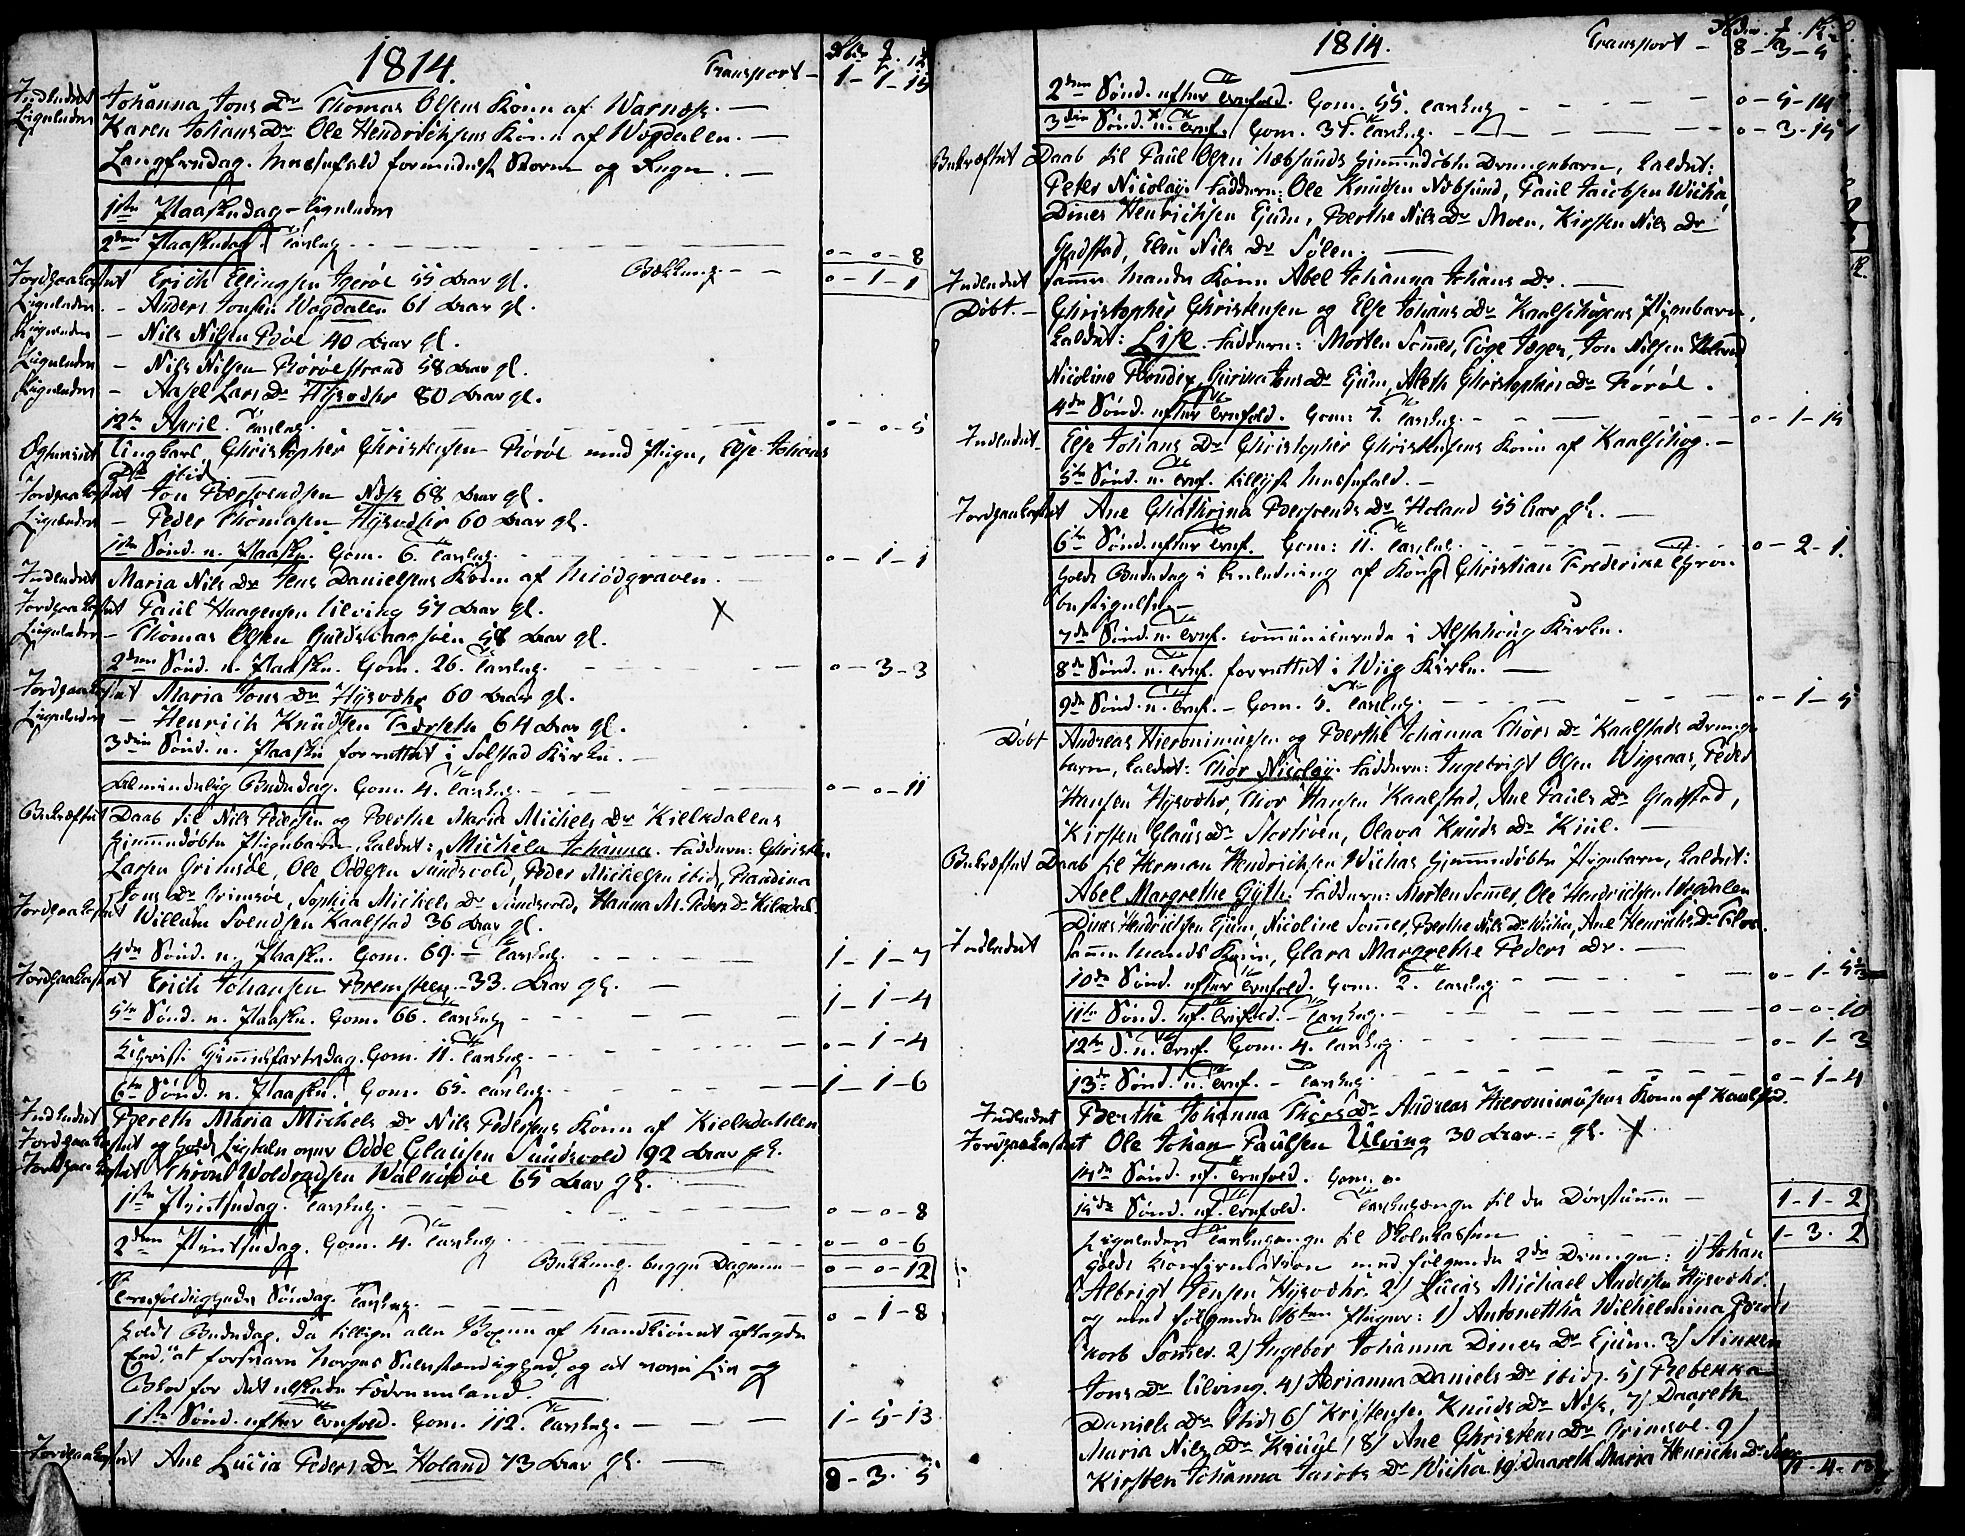 1814.
Transport - 1-1-15
Indledet Johanna Jons Dr Thomas Olsens Kone af Warnæs. -
Ligeledes Karen Johans Dr Ole Hendrichsens Kone af Wogdalen. -
Langfredag. Messefald formedelst Storm og Regn. -
1ste Paaskedag - ligeledes
2den Paaskedag. Tavlep. - 0-0-8
Bækkenp. - 0-1-1
Jordpaakastet Erich Ellingsen Igerøe 55 Aar gl.
Ligeledes - Anders Jonsen Wogdalen 61 Aar gl.
Ligeledes - Nils Nilsen Bøe 40 Aar gl.
Ligeledes - Nils Nilsen Rørøestrand 58 Aar gl.
Ligeledes - Aasel Lars Dr Hysvedhr 80 Aar gl.
12te April. Tavlep. - 0-0-5
Ægteviet Ungkarl Christopher Christensen Rørøe med Pige, Else Johans
Dr ibid.
Jordpaakastet Jon Bersvendsen Næss 68 Aar gl.
Ligeledes - Peder Thomasen Hysvedhr 60 Aar gl.
1ste Sønd. e. Paaske. Com. 6. Tavlep. - 0-1-1
Indledet Maria Nils Dr Jens Danielsens Kone af Miødgraven.
Jordpaakastet Paul Haagensen Ulving 57 Aar gl. X
Ligeledes - Thomas Olsen 58 Aar gl.
2den Sønd. e. Paaske. Com. 26. Tavlep. - 0-3-3
Jordpaakastet Maria Jons Dr Hysvedhr 60 Aar gl.
Ligeledes - Henrich Knudsen Torseth 64 Aar gl.
3die Sønd. e. Paaske forrettet i Solstad Kirke. -
Almindelig Bededag. Com. 4. Tavlep. - 0-0-11
Bekræftet Daab til Nils Pedersen og Berthe Maria Michels Dr Kielkdallens
hiemmedøbte Pigebarn, kaldet: Michela Johanna. Faddere: Christen
Larsen Grimsøe, Ole Oddesen Sundsvold, Peder Michelsen ibid, Randina
Jons Dr Grimsøe, Sophia Michels Dr Sundsvold, Hanna M. Peders Dr Kilkdal.
Jordpaakastet Willum Svendsen Kaalstad 36 Aar gl.
4de Sønd. e. Paaske. Com. 69. Tavlep. - 1-1-7
Jordpaakastet Erich Johansen Bremsteen 33 Aar gl. -
5te Sønd. e. Paaske. Com. 66. Tavlep. - 1-1-4
Christi Himmelfartsdag. Com. 11. Tavlep. - 0-1-4
6te Sønd. e. Paaske. Com. 65. Tavlep. - 1-1-6
Indledet Bereth Maria Michels Dr Nils Pedersens Kone af Kielkdallen
Jordpaakastet og holdt Ligtale over Odde Clausen Sundsvold 92 Aar gl.
Jordpaakastet Thron Woldradsen Walnisøe 65 Aar gl. -
1ste Pintsedag. Tavlep. - 0-0-8
2den Pintsedag. Com. 4. Tavlep. - 0-0-6
Bækkenp. begge Dagene - 0-0-12
Trefoldigheds Søndag. Tavlep. - 0-1-8
Holdt Bededag, da tillige alle Voxne af Mandkiønnet aflagde
Eed, "at forsvare Norges Selvstændighed, og at vove Liv og
Blod for det elskede Fødreneland.
1ste Sønd. efter Trefold. Com. 112. Tavlep. - 1-5-13
Jordpaakastet Ane Lucia Peders Dr Holand 73 Aar gl. -
8-3-5
1814.
Transport - 8-3-5
2den Sønd. efter Trefold. Com. 55. Tavlep. - 0-5-14
3die Sønd. e. Tref. Com. 31. Tavlep. - 0-3-15
Bekræftet Daab til Paul Olsen Næbsunds hiemmedøbte Drengebarn, kaldet:
Peter Nicolay. Faddere: Ole Knudsen Nebsund, Paul Jacobsen Wicha,
Dines Henrichsen Eium, Berthe Nils Dr Moen, Kirsten Nils Dr
Gladstad, Elen Nils Dr Sølen. -
Indledet samme Mands Kone Abel Johanna Johans Dr. -
Døbt. - Christopher Christensen og Else Johans Dr Kaalshougens Pigebarn,
kaldet: Lise. Faddere: Morten Somer, Jon Nilsen Holand
Nicoline Jons Dr Eium, Aleth Christophers Dr Rørøe.
4de Sønd. efter Trefold. Com: 7. Tavlep. - 0-1-15
Indledet Else Johans Dr Christopher Christensens Kone af Kaalshog. -
5te Sønd. e. Tref. tillyst Messefald. -
Jordpaakastet Ane Chathrina Bersvends Dr Holand 55 Aar gl. -
6te Sønd. efter Tref. Com: 11. Tavlep. - 0-2-1.
Holdt Bededag i Anledning af Kong Christian Frederiks Thron
bestigelse. -
7de Sønd. e. Tref. communicerede i Alstahoug Kirke.
8de Sønd. e. Tref. forrettet i Wiig Kirke. -
9de Sønd. e. Tref. - Com. 5. Tavlep. - 0-1-5
Døbt Andreas Hieronimusen og Berthe Johanna Thors Dr Kaalstads Drenge
barn, kaldet: Thor Nicolay. Faddere: Ingebrigt Olsen Wigsaas, Peder
Hansen Hysvedhr, Thor Hansen Kaalstad, Ane Pauls Dr Gladstad,
Kirsten Claus Dr Olava Knuds Dr Kiil. -
Bekræftet Daab til Herman Hendrichsen Wichas hiemmedøbte Pigebarn, kaldet:
Abel Margrethe Gyth. Faddere: Morten Somer, Ole Hendrichsen Wogdalen
Dines Hendrichsen Eium, Nicoline Somer, Berthe Nils Dr Wicha, Ane Henrichs Dr
Indledet samme Mands Kone, Clara Margrethe Peders Dr. -
10de Sønd. efter Trefold. Com. 2. Tavlep. - 0-1-5
11te Sønd. ef. Trefold. - Tavlep. - 0-0-10
12te S. e. Tref. Com. 4. Tavlep. - 0-1-3
13de Sønd. e. Tref. - Tavlep. - 0-1-4
Indledet Berthe Johanna Thors Dr Andreas Hieronimusens Kone af Kaalstad.
Jordpaakastet Ole Johan Paulsen Ulving 30 Aar - gl. X
14de Sønd. ef. Trefold. Com. 0.
15de Sønd. ef. Trefold. Tavlepænge til de Døvstumme - 1-1-2
Ligeledes Tavlepænge til Skolekassen 1-3-2
Holdt Confirmation med følgende 2de Drenge: 1) Johan
Albrigt Jensen Hysvedhr. 2) Lucas Michael Andersen Hysvedhr.
og med følgende Piger: 1) Antonettha Wilhelmina
Somer. 2) Ingebor Johanna Dines Dr Eium. 3) Stinken
Jons Dr Ulving. 4) Adrianna Daniels Dr ibid. 5) Rebekka
Daniels Dr ibid 6) Kristense Knuds Dr Næs, 7) Daareth
Maria Nils Dr 8) Ane Christens Dr Grimsøe. 9)
Kirsten Johanna Jacobs Dr Wicha 10) Daareth Maria Henrichs Dr
11-4-13